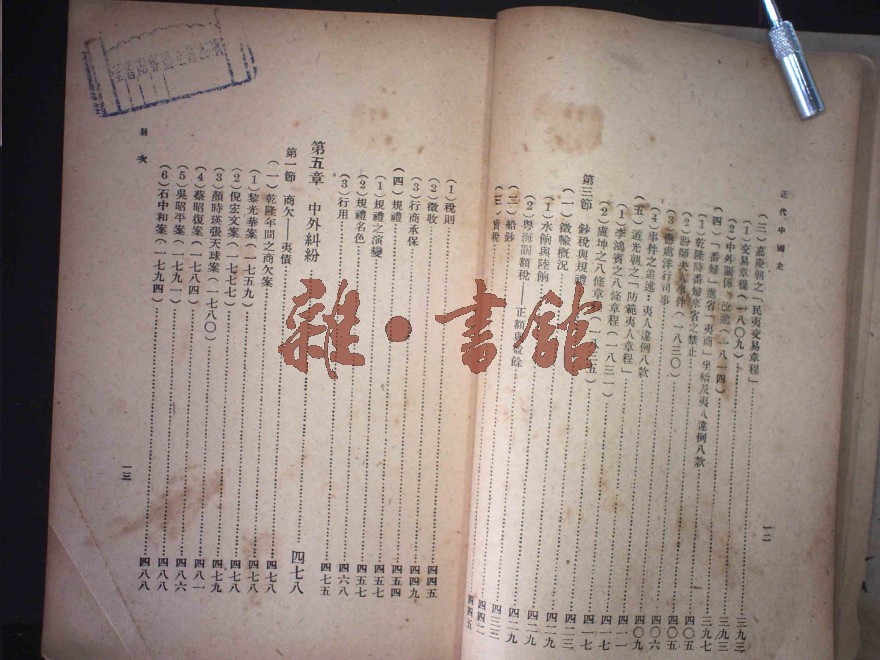 近代中國史
(三)嘉慶朝之「民夷交易章程」……三九三
(1)交易章程(一八〇九)……三九三
(2)中外關係 改進(一八一四)……三九七
(四)「番婦」進省「夷商」坐轎及夷人違例八款……四〇五
(1)乾隆時番婦來省之禁止……四〇五
(2)盼師夫人事件(一八三〇)……四〇六
(3) 處洋行司事……四〇九
(4)事件之追述:夷人違例八款……四一一
(五)道光朝之「防範夷人章程」……四一七
(1)李鴻賓之八條章程(一八三一)……四一七
(2)盧坤之八條章程(一八三五)……四二三
第三節 鈔稅與規禮……四二九
(一)徵輸概況……四二九
(1)水餉與陸餉……四二九
(2)粵海關額稅——正額與 餘……四三三
(二)船鈔……四四二
(三)貨稅……四四五
一二
雜·書館
(1)稅則……四四五
(2)徵收……四四五
(3)行商承保……四四九
(四)規禮……四五四
(1)規禮之演變……四五七
(2)規禮名色……四五七
(3)行用……四六八
四七五
第五章 中外糾紛……四七八
第一節 商欠——夷債……四七八
(一)乾隆年間之商欠案……四七八
(1)黎光華案(一七五九)……四七八
(2)倪宏文案(一七七七)……四七八
(3)顏時瑛張天球案(一七八〇)……四七九
(4)蔡昭復案(一七八四)……四八一
(5)吳昭平案(一七九一)……四八六
(6)石中和案(一七九四)……四八八
目次
一三